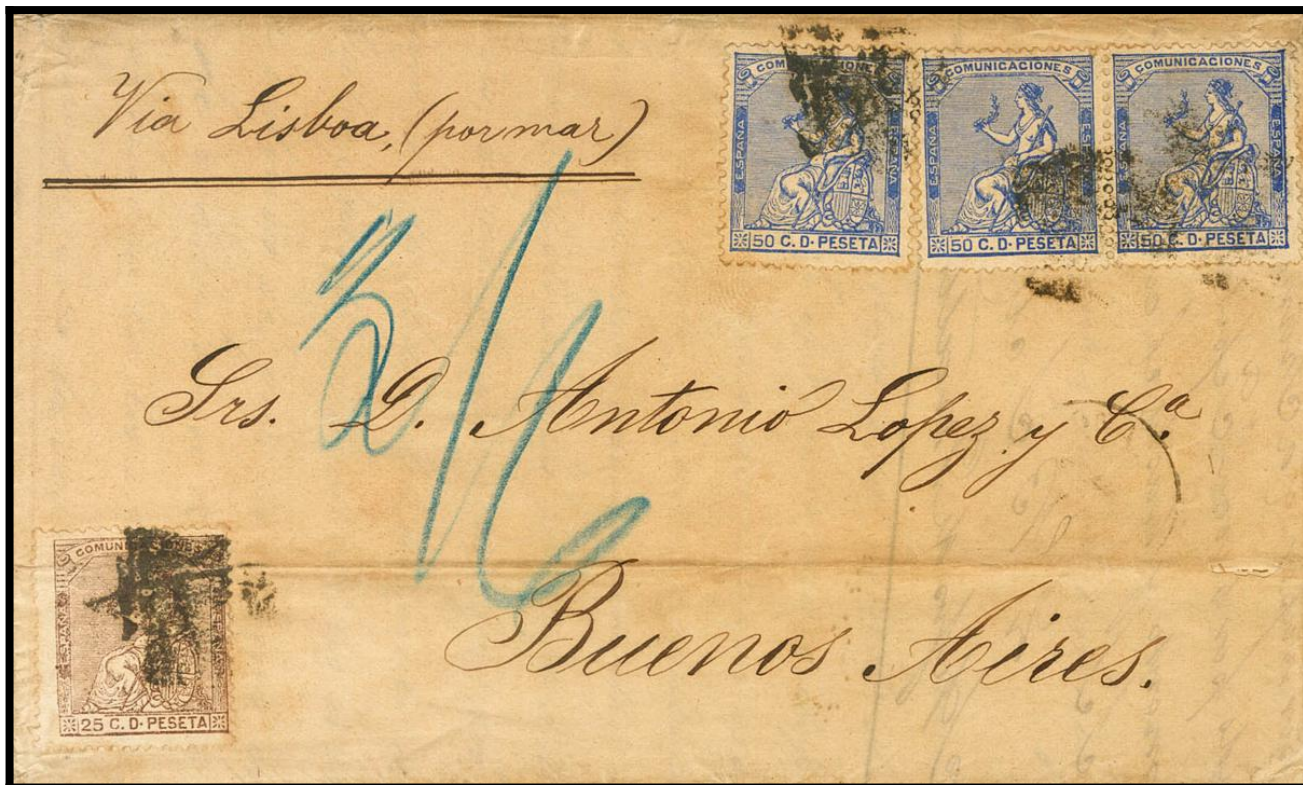 Via Lisboa, (por mar)
COMUNICACIONES
ESPAÑA
ESPAÑA
50 C. D. PESETA
COMUNICACIONES
ESPAÑA
ESPAÑA
50 C. D. PESETA
COMUNICACIONES
ESPAÑA
ESPAÑA
50 C. D. PESETA
Srs. D. Antonio Lopez y Cª
Buenos Aires.
COMUNICACIONES
ESPAÑA
25 C. D. PESETA